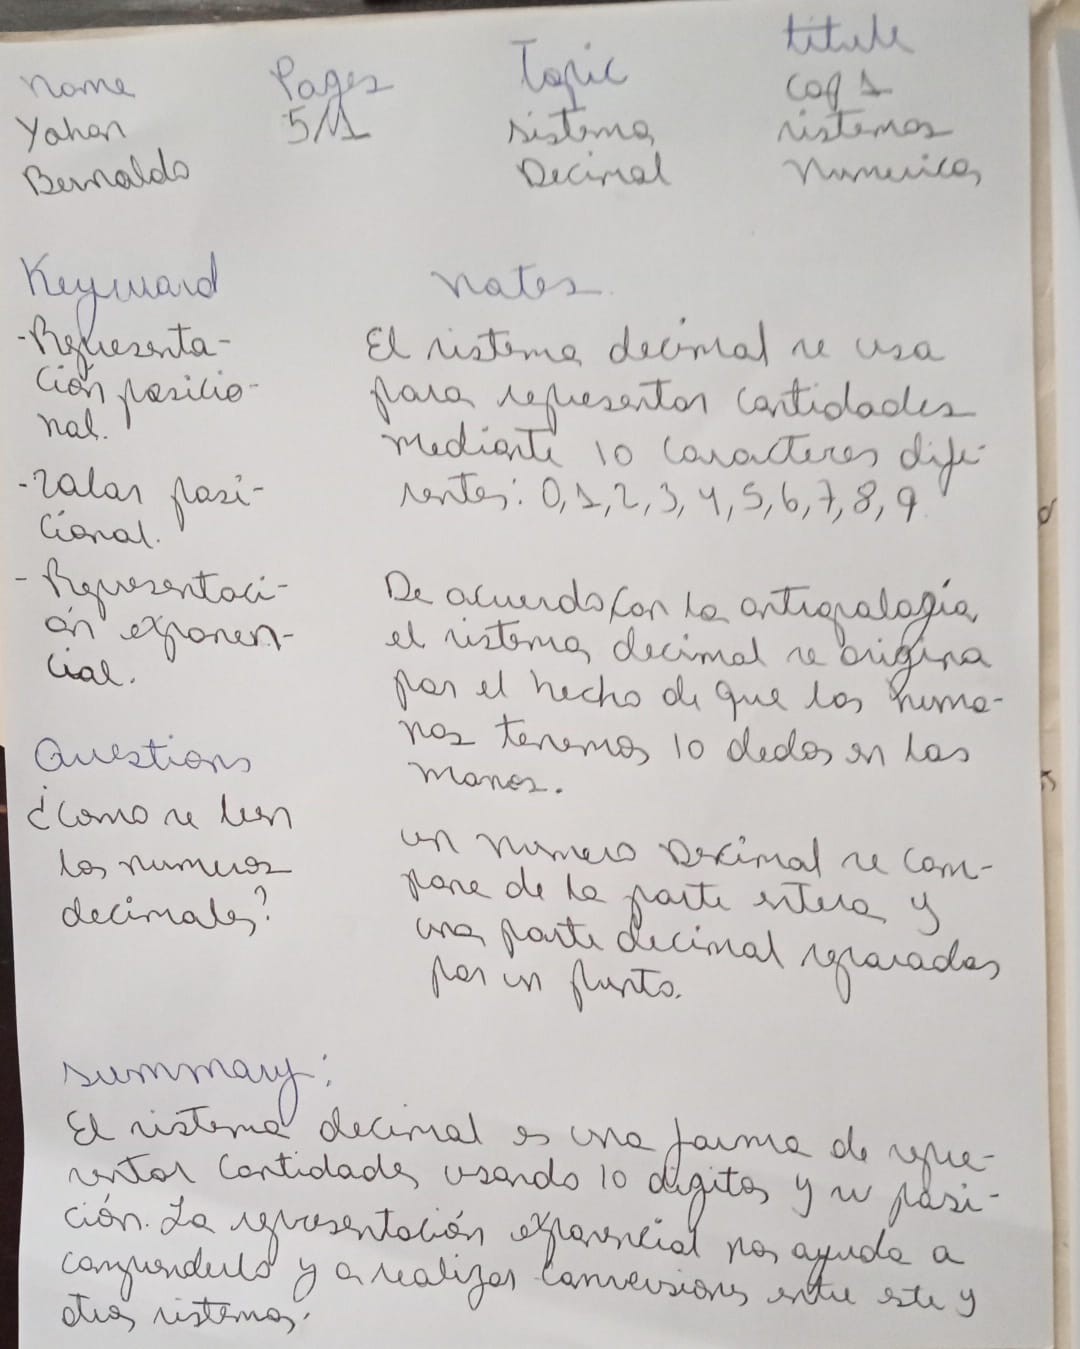 Name Pages Topic titule
Yahan 5/11 sistema cap 1
Bernaldo Decimal sistemas
Numericos
Keyword
-Representa-
ción posicio-
nal.
-valor posi-
cional.
-Representaci-
ón exponen-
cial.
Questions
¿Como se leen
los numeros
decimales?
Notes
El sistema decimal se usa
para representar cantidades
mediante 10 caracteres dife-
rentes: 0,1,2,3,4,5,6,7,8,9
De acuerdo con la antropología
el sistema decimal se origina
por el hecho de que los huma-
nos tenemos 10 dedos en las
manos.
un numero Decimal se com-
pone de la parte entera y
una parte decimal separadas
por un punto.
summary:
El sistema decimal es una forma de repre-
sentar cantidades usando 10 digitos y su posi-
ción. La representación exponencial nos ayuda a
comprenderlo y a realizar conversiones entre este y
otros sistemas.